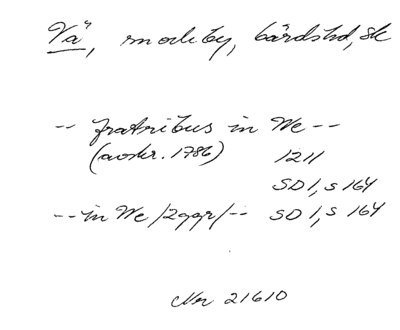 Vä, snoderby, bårdshd, sk
-- fratribus in We --
(avskr. 1786) 1211
SD 1, s 164
-- in We /2ggr/-- SD 1, s 164
Nr 21610